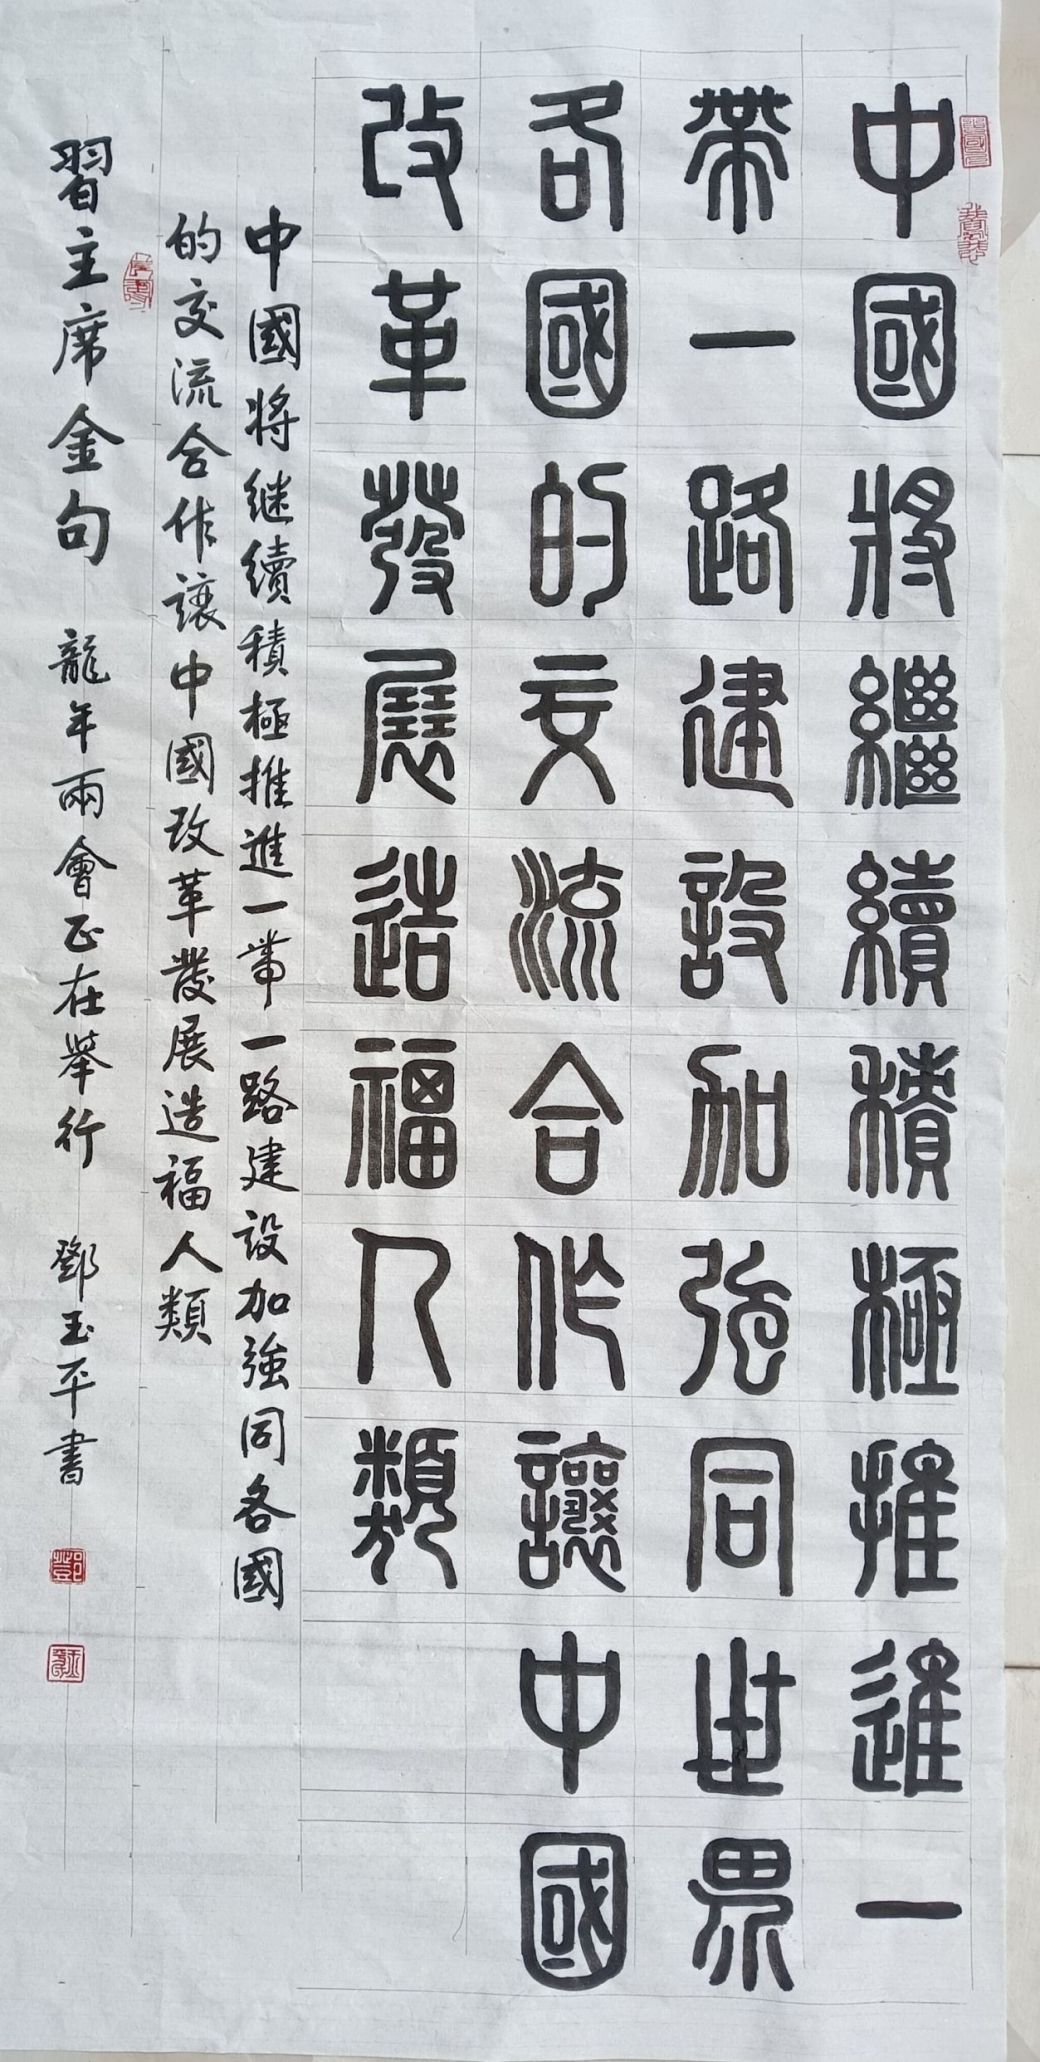 中國將繼續積極推進一
帶一路建設加強同世界
各國的交流合作讓中國
改革發展造福人類
中國將继續積極推進一帶一路建設加強同各國
的交流合作讓中國改革發展造福人類
習主席金句 龍年兩會正在舉行 鄧玉平書